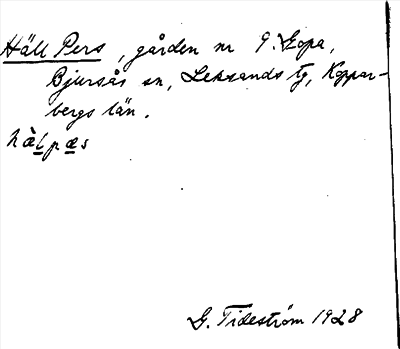 Häll Pers, gården nr 9. Lopa,
Bjursås sn, Leksands tg, Koppar-
bergs län.
hàlpæs
G. Tideström 1928